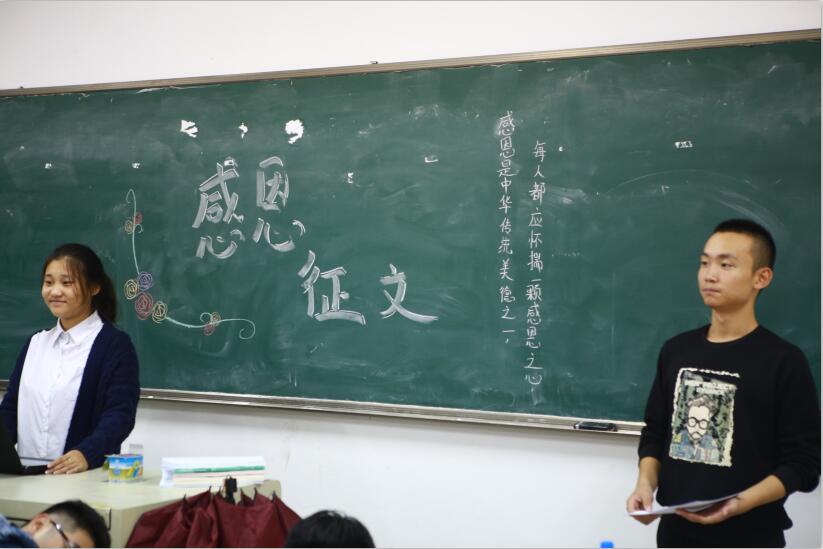 感恩
征文
每人都应怀揣一颗感恩之心
感恩是中华传统美德之一，